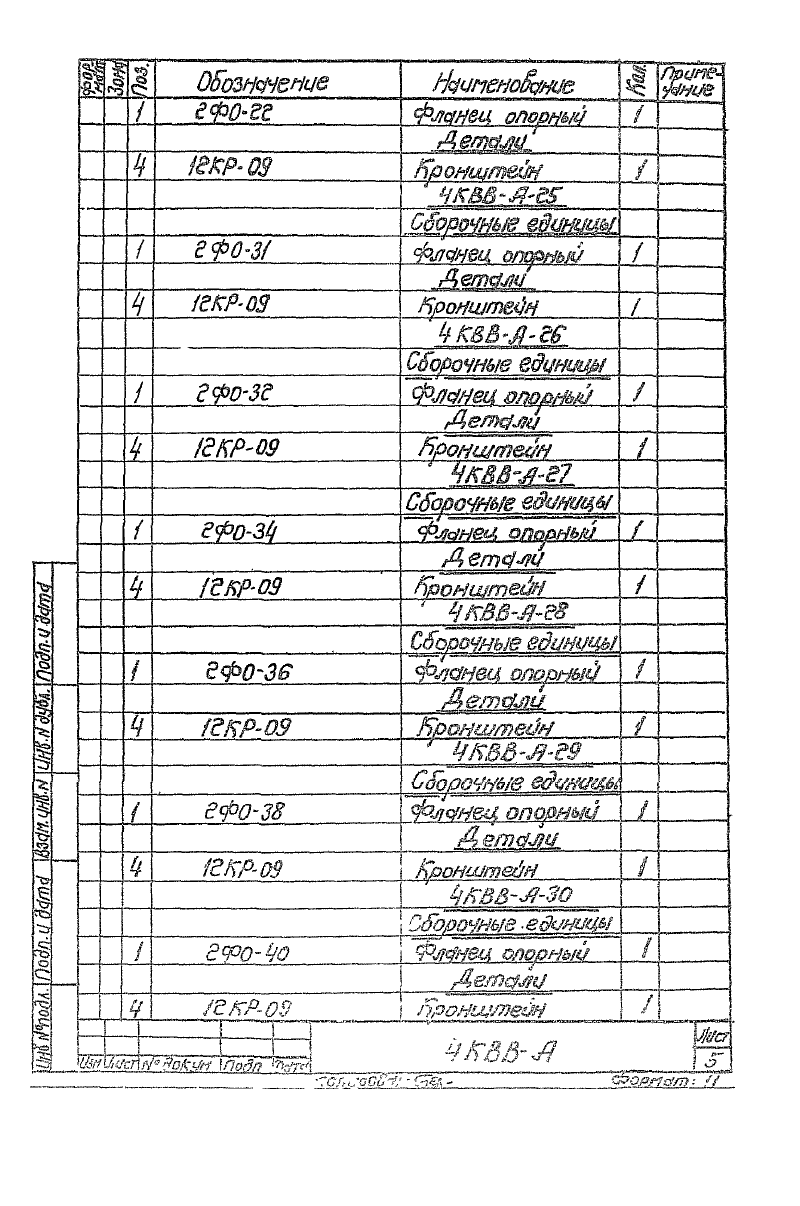 Фор мат Зона Поз. Обозначение Наименование Кол. Приме-чание
1 2ФО-22 Фланец опорный 1
Детали
4 12КР-09 Кронштейн 1
4КВВ-А-25
Сборочные единицы
1 2ФО-31 Фланец опорный 1
Детали
4 12КР-09 Кронштейн 1
4КВВ-А-26
Сборочные единицы
1 2ФО-32 Фланец опорный 1
Детали
4 12КР-09 Кронштейн 1
4КВВ-А-27
Сборочные единицы
1 2ФО-34 Фланец опорный 1
Детали
4 12КР-09 Кронштейн 1
4КВВ-А-28
Сборочные единицы
1 2ФО-36 Фланец опорный 1
Детали
4 12КР-09 Кронштейн 1
4КВВ-А-29
Сборочные единицы
1 2ФО-38 Фланец опорный 1
Детали
4 12КР-09 Кронштейн 1
4КВВ-А-30
Сборочные единицы
1 2ФО-40 Фланец опорный 1
Детали
4 12КР-09 Кронштейн 1
Инв.№подл. Подп. и дата Взам.инв.N Инв.N дубл. Подп. и дата
Изм Лист № докум Подп Дата
4КВВ-А
Лист
5
Формат: 11